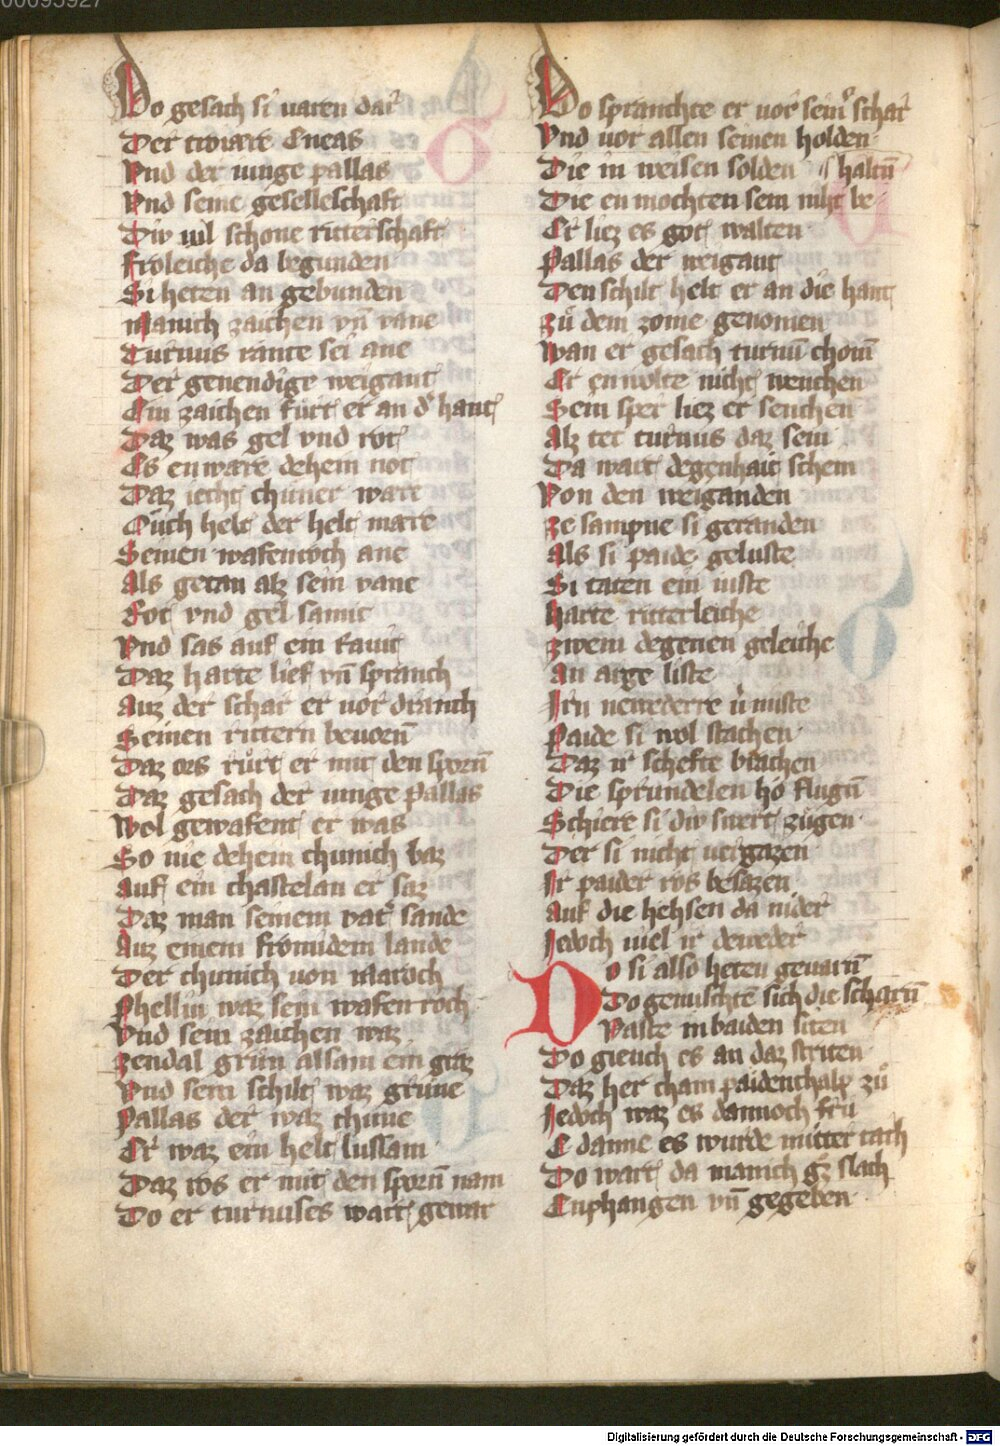 Do gesach si varen dar
Der troiare Eneas
Vnd der iunge pallas
Vnd seine geselleschaft
Div vil schone ritterschaft
Froleiche da begunden
Si heten an gebunden
Manich zaichen vn̄ vane
Turnus rante sei ane
Der genendige weigant
Ein zaichen furt er an d' hant
Daz was gel vnd rot
Es en ware dehein not
Daz iecht chuner ware
Ouch helt der helt mare
Seinen wafenroch ane
Als getan alz sein vane
Rot vnd gel samit
Vnd sas auf ein rauit
Daz harte lief vn̄ spranch
Auz der schar er vor dranch
Seinen rittern beuorn̄
Daz ors rurt er mit den sporn̄
Daz gesach der iunge Pallas
Wol gewafent er was
So nie dehein chunich baz
Auf ein chastelan er saz
Daz man seinem vat' sande
Auz einem fromidem lande
Der chunich von Maroch
Phellin waz sein wafen roch
Vnd sein zaichen waz
Zendal grun alsam ein graz
Vnd sein schilt waz grune
Pallas der waz chune
Er waz ein helt lussam
Daz ros er mit den sporn̄ nam
Do er turnuses wart gewar
Do spranchte er vor sein' schar
Vnd vor allen seinen holden
Die in weisen solden
Die en mochten sein niht be haltn̄
Er liez es got walten
Pallas der weigant
Den schilt helt er an die hant
Zu dem zorne genomen
Wan er gesach turnū chom̄
Er en wolte nicht wenchen
Sein sper liez er senchen
Alz tet turnus daz sein
Da wart degenhait schein
Von den weiganden
Ze sampne si geranden
Als si paide geluste
Si taten ein iuste
Harte ritterleiche
Zwein degenen geleiche
An arge liste
Irn newederre v'miste
Paide si wol stachen
Daz ir schefte brachen
Die sprundelen ho flugn̄
Schiere si div swert zugen
Der si nicht uergazen
Ir paider ros besazen
Auf die hehsen da nider
Iedoch viel ir deweder
Do si also heten geuarn̄
Do gemischten sich die scharn̄
Vaste in baiden siten
Do giench es an daz striten
Daz her cham paidenthalp zu
Iedoch waz es dannoch fru
E danne es wurde mitter tach
Do wart da manich gz slach
Enphangen vn̄ gegeben
Digitalisierung gefördert durch die Deutsche Forschungsgemeinschaft - DFG